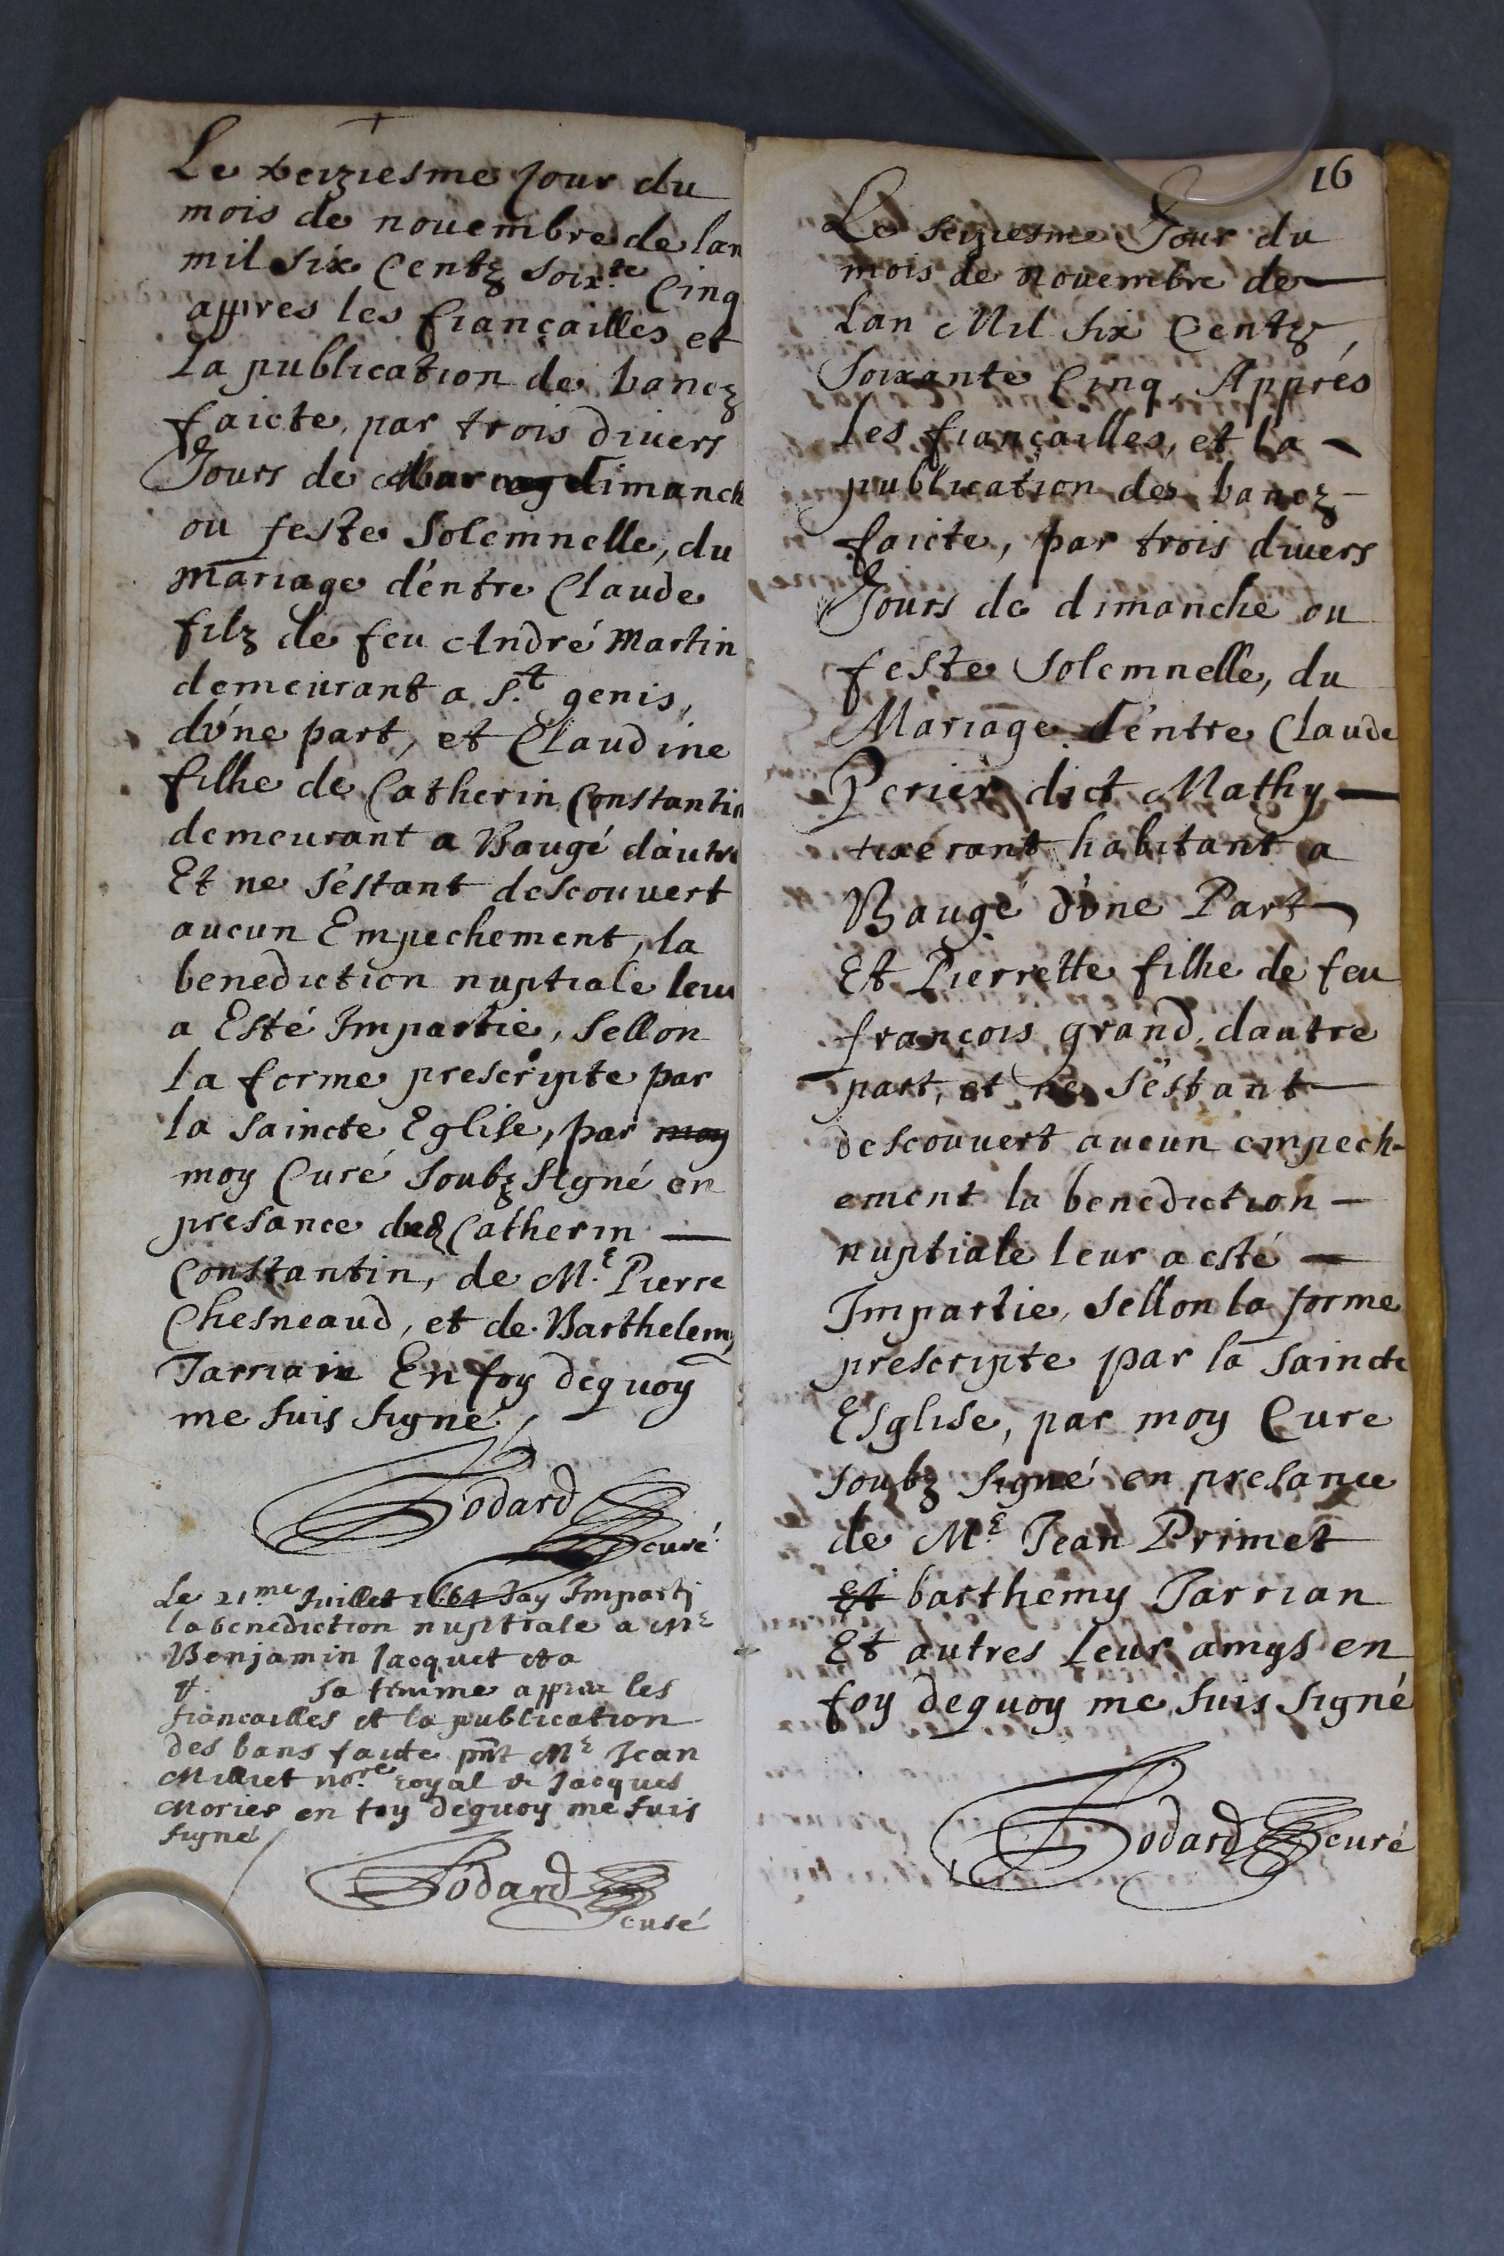 Le treiziesme Jour du
mois de nouembre de lan
mil six Centz soix.te Cinq
appres les fiançailles, et
la publication de bancz
faicte, par trois diuers
Jours de dimanch
ou feste Solemnelle, du
mariage d'entre Claude
filz de feu André Martin
demeurant a S.t genis,
d'une part, et Claudine
filhe de Catherin Constantin
demeurant a Baugé d'autre
Et ne s'estant descouuert
aucun Empechement, la
benediction nuptiale leur
a Esté Impartie, Sellon
la forme prescripte par
la Saincte Eglise, par moy
moy Curé Soubz Signé en
presance de Catherin —
Constantin, de M.e Pierre
Chesneaud, et de Barthelemy
Tarriain En foy dequoy
me suis signé
Godard
curé
Le 21.me Juillet 1664 Jay Imparti
la benediction nuptiale a M.e
Benjamin Jacquet et a
sa femme appres les
fiancailles et la publication
des bans faicte pnt M.e Jean
Milliet no.re royal & Jacques
Morier en foy dequoy me suis
signé
Godard
curé
16
Le seiziesme Jour du
mois de nouembre de —
Lan Mil six Centz
Soixante Cinq Apprés
les fiançailles, et la —
publication des bancz —
faicte, par trois diuers
Jours de dimanche ou
feste Solemnelle, du
Mariage d'entre Claude
Perier dict Mathy —
tixerant habitant a
Baugé d'une Part —
Et Pierrette filhe de feu
françois grand, dautre
part, et ne s'estant —
descouuert aucun empech-
ement la benediction —
nuptiale leur a esté —
Impartie, sellon la forme
prescripte par la saincte
Esglise, par moy Cure
soubz signé en presance
de M.e Jean Primet
et barthemy Tarrian
Et autres leur amys en
foy dequoy me suis signé
Godard curé